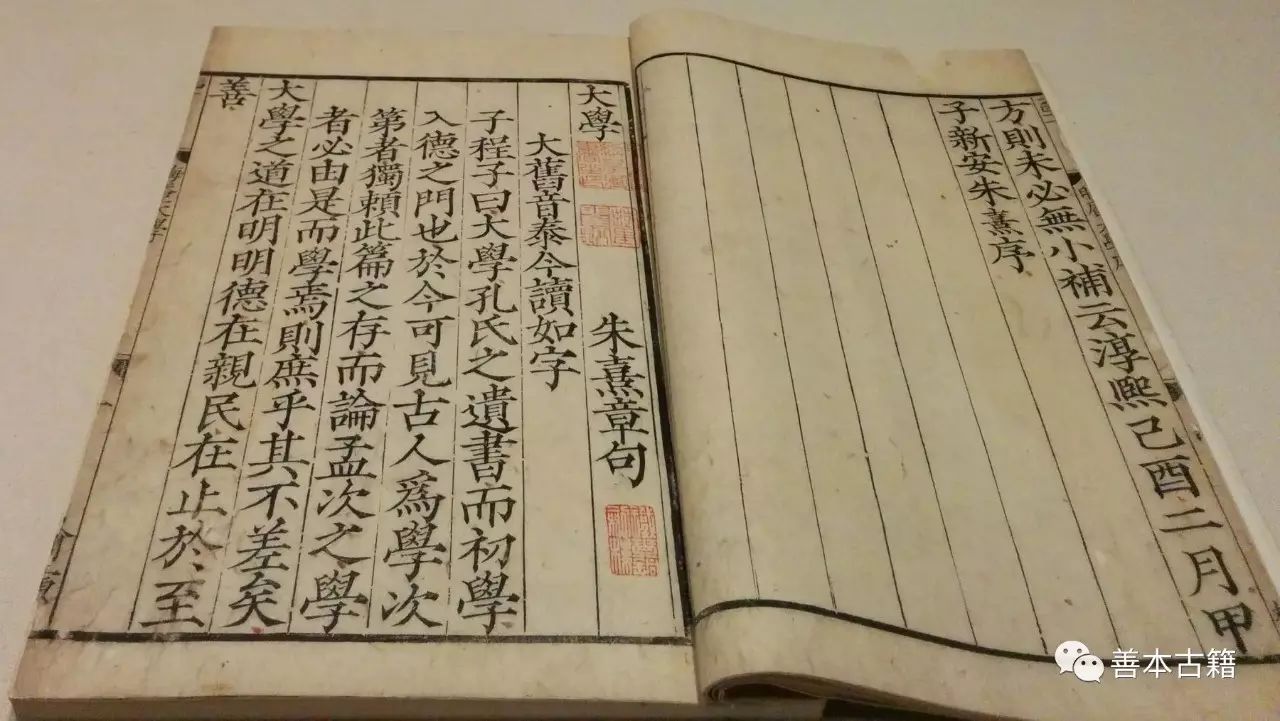 方則未必無小補云淳熙己酉二月甲
子新安朱熹序
大學
朱熹章句
大舊音泰今讀如字
子程子曰大學孔氏之遺書而初學
入德之門也於今可見古人爲學次
第者獨賴此篇之存而論孟次之學
者必由是而學焉則庶乎其不差矣
大學之道在明明德在親民在止於至
善
善本古籍